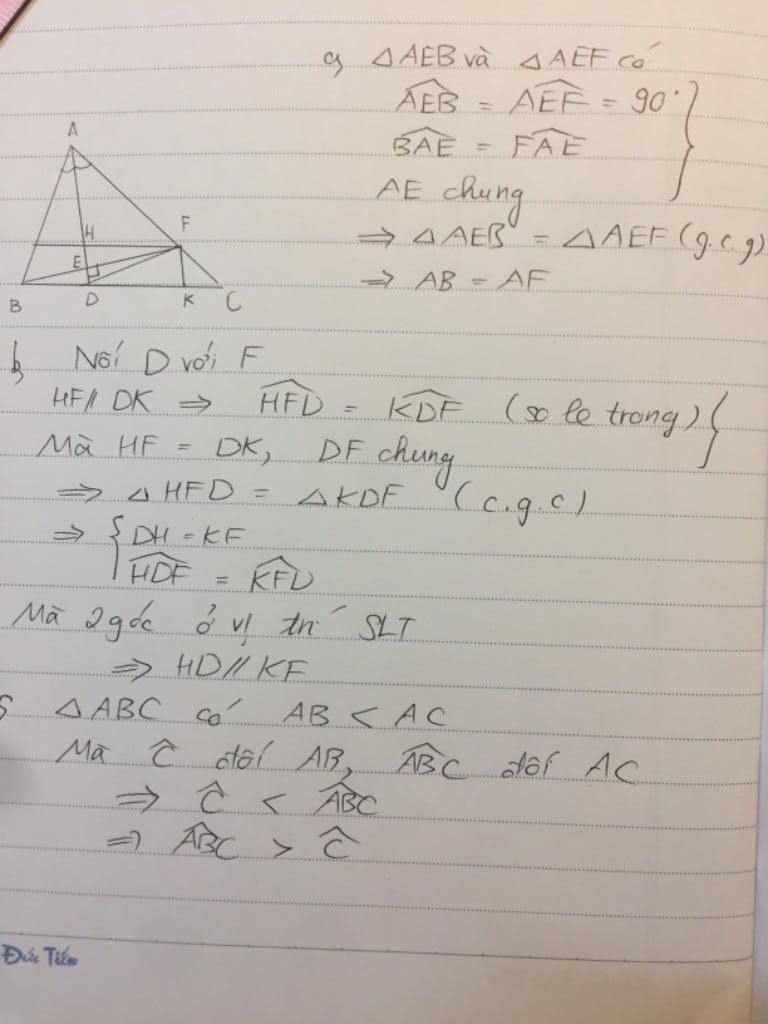 a, △AEB và △AEF có
AEB^ = AEF^ = 90°
BAE^ = FAE^
AE chung
⇒ △AEB = △AEF (g.c.g)
⇒ AB = AF
A
H
F
E
B
D
K
C
b, Nối D với F
HF // DK ⇒ HFD^ = KDF^ (so le trong)
Mà HF = DK, DF chung
⇒ △HFD = △KDF (c.g.c)
⇒ { DH = KF
HDF^ = KFD^
Mà 2 góc ở vị trí SLT
⇒ HD // KF
c, △ABC có AB < AC
Mà C^ đối AB, ABC^ đối AC
⇒ C^ < ABC^
⇒ ABC^ > C^
Đức Tiến